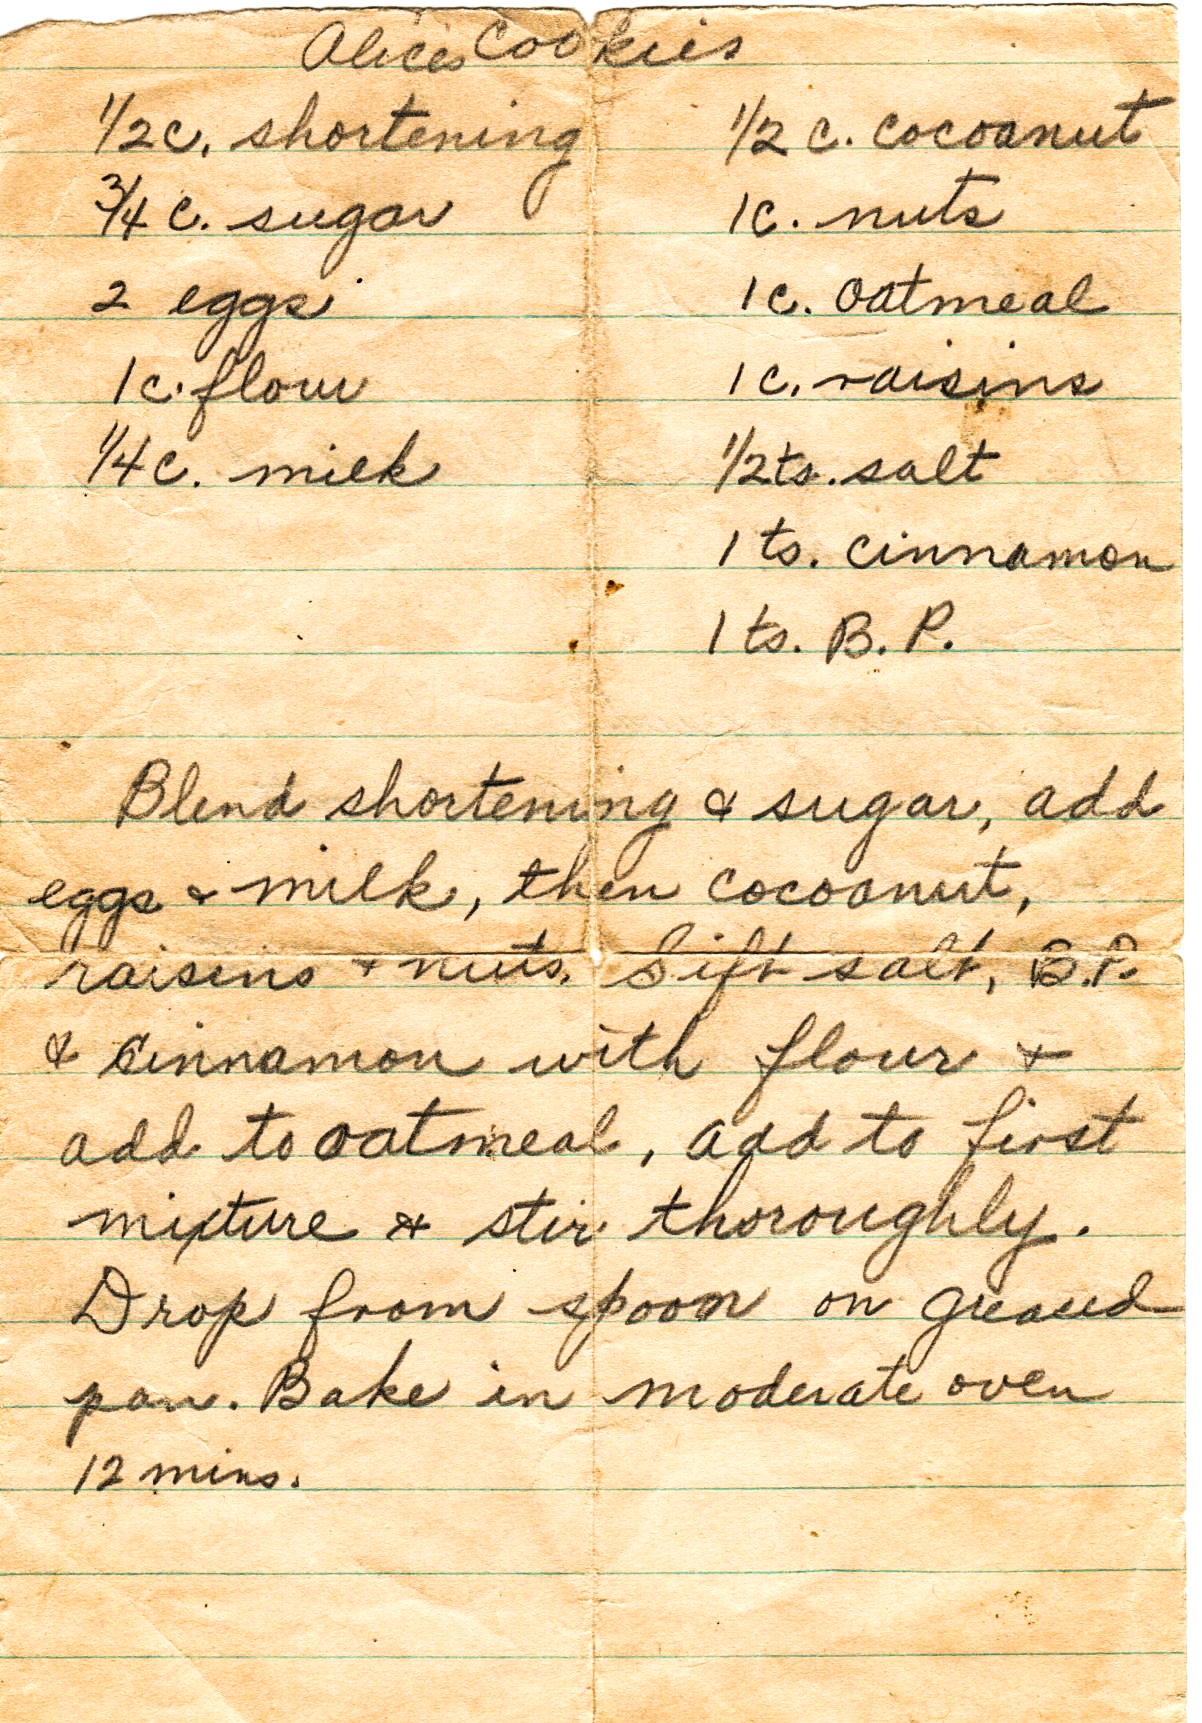 Alices Cookies
1/2 c. shortening
3/4 c. sugar
2 eggs
1 c. flour
1/4 c. milk
1/2 c. cocoanut
1 c. nuts
1 c. oatmeal
1 c. raisins
1/2 ts. salt
1 ts. cinnamon
1 ts. B.P.
Blend shortening & sugar, add
eggs & milk, then cocoanut,
raisins & nuts. Sift salt, B.P.
& cinnamon with flour &
add to oatmeal, add to first
mixture & stir thoroughly.
Drop from spoon on greased
pan. Bake in moderate oven
12 mins.